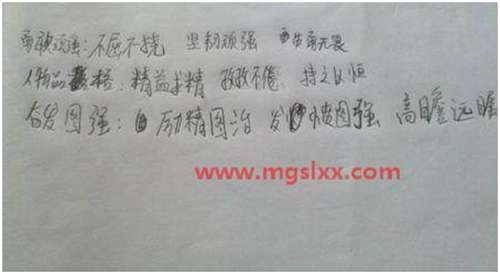 勇敢顽强：不屈不挠 坚韧顽强 勇猛无畏
人物品格：精益求精 孜孜不倦 持之以恒
奋发图强：励精图治 发愤图强 高瞻远瞩
www.mgslxx.com